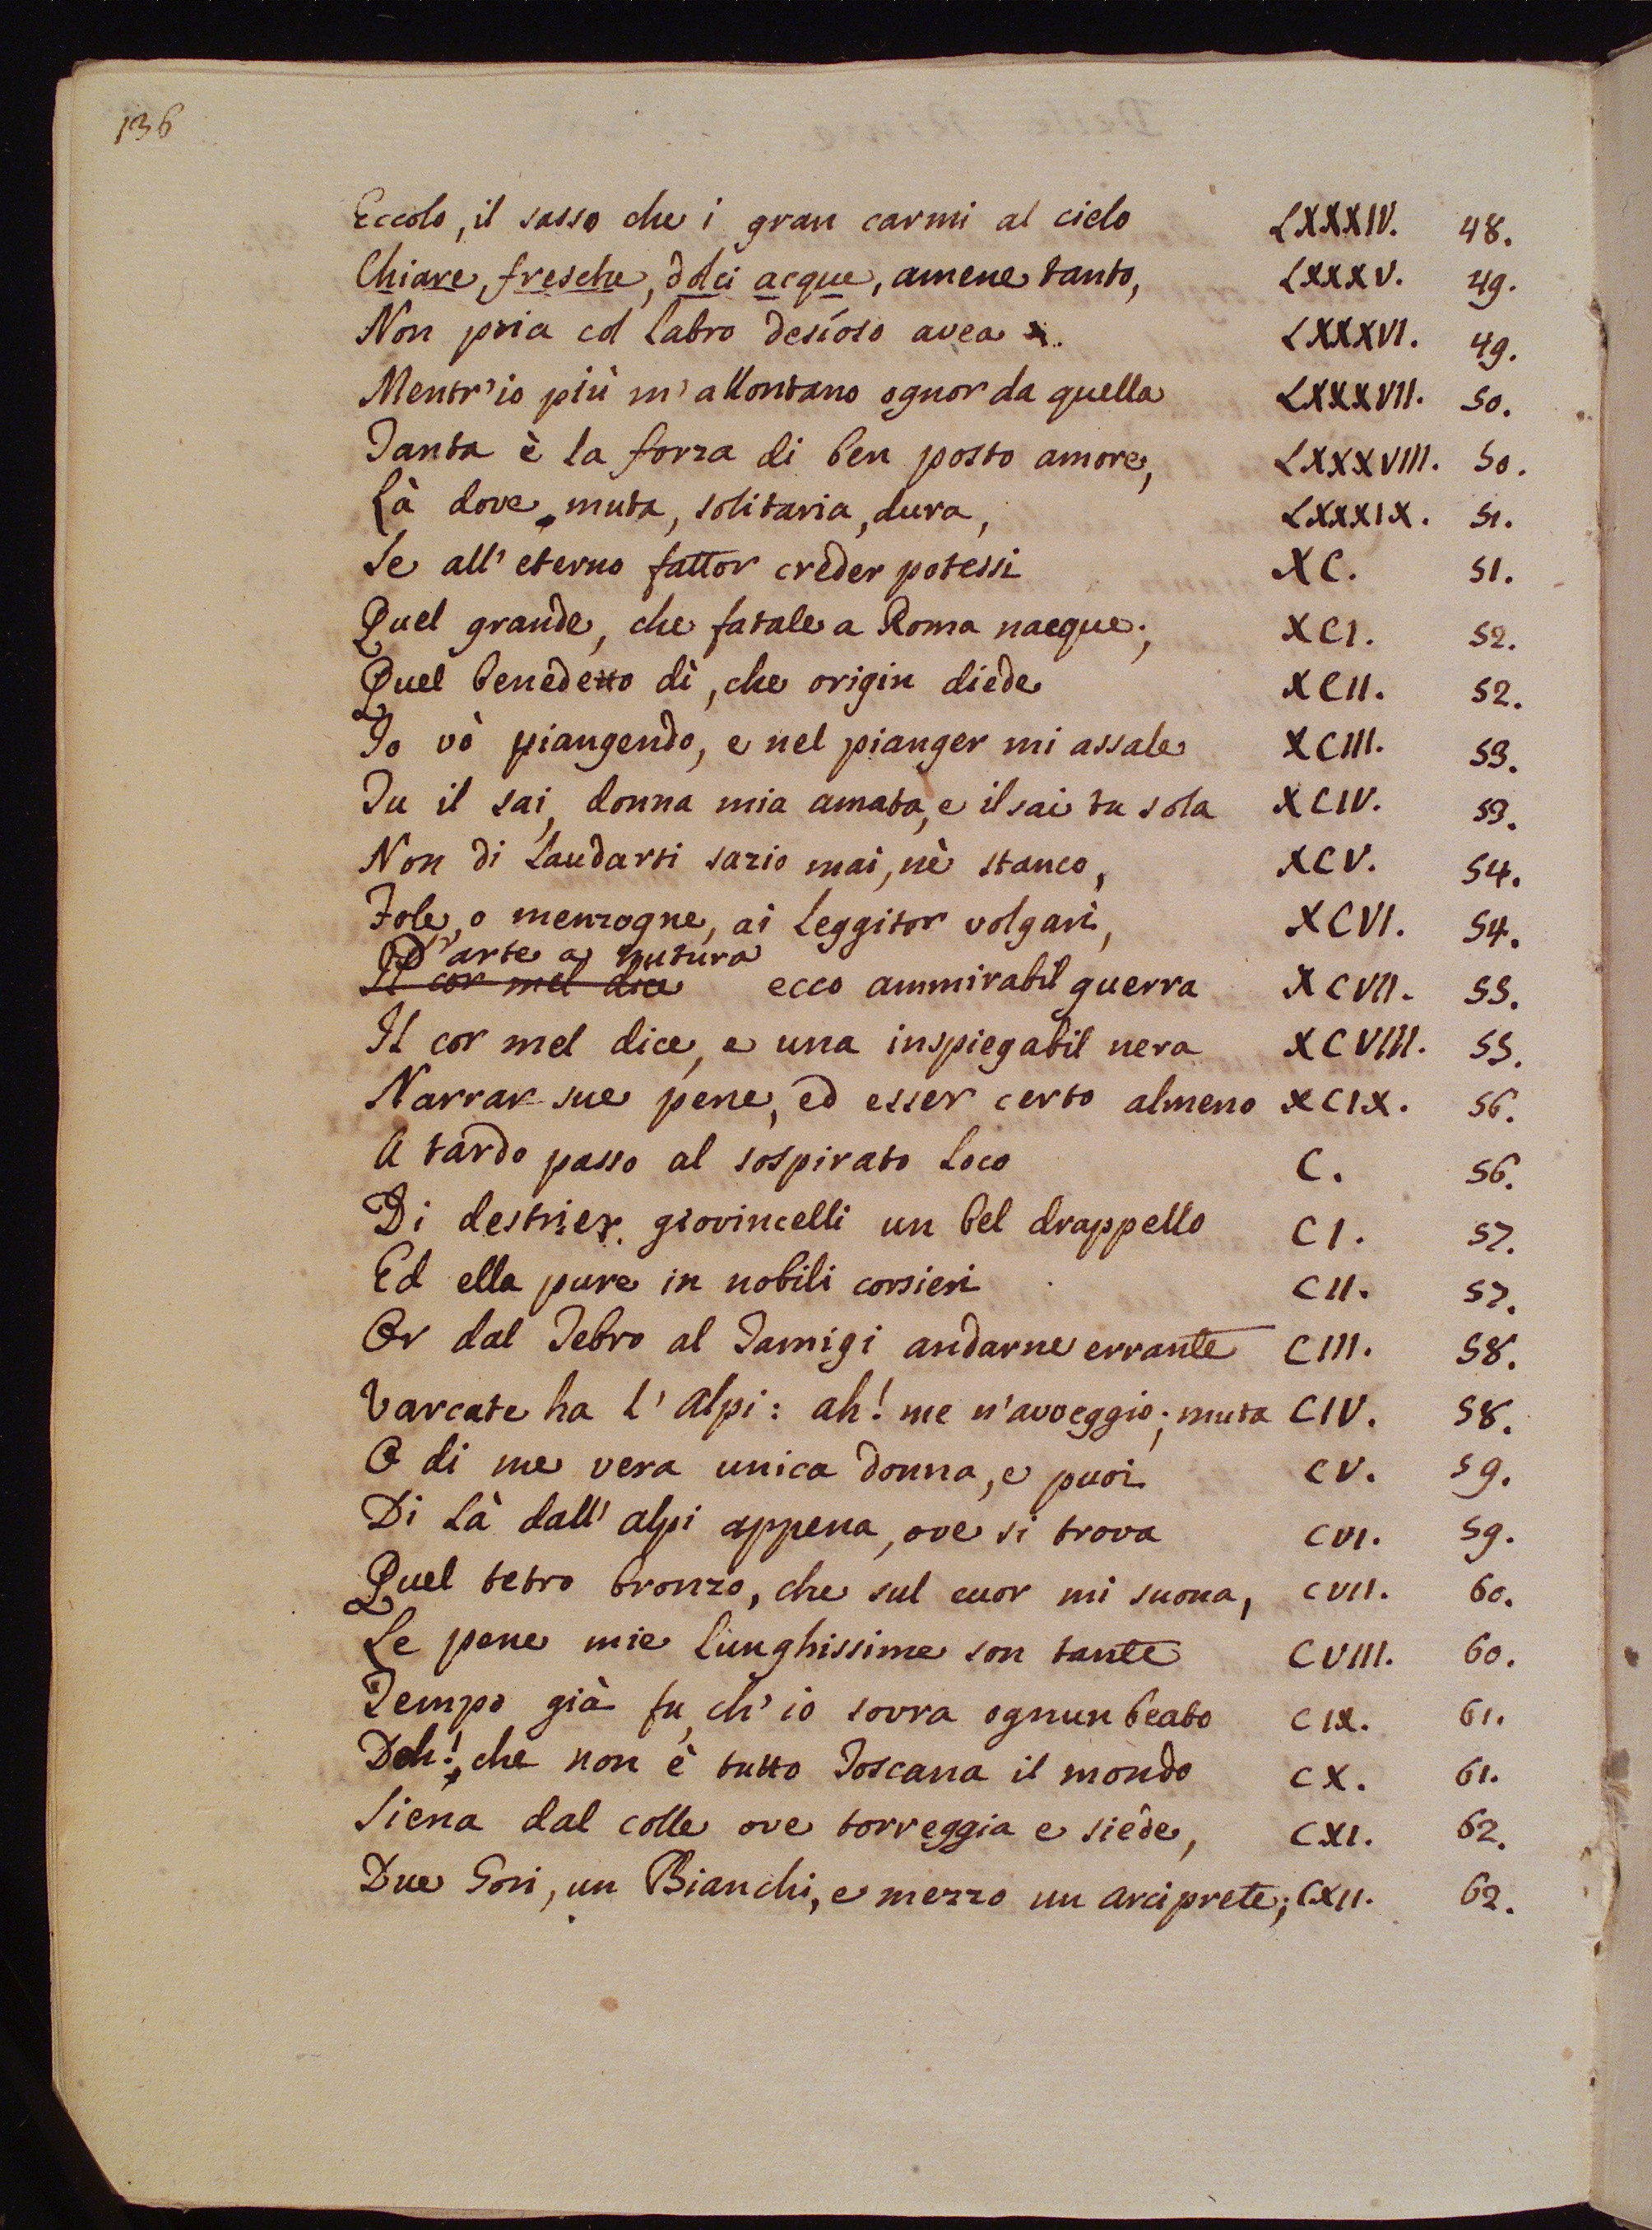 136
Eccolo, il sasso che i gran carmi al cielo LXXXIV. 48.
Chiare, fresche, dolci acque, amene tanto, LXXXV. 49.
Non pria col labro desioso avea LXXXVI. 49.
Mentr'io più m'allontano ognor da quella LXXXVII. 50.
Tanta è la forza di ben posto amore, LXXXVIII. 50.
Là dove muta, solitaria, dura, LXXXIX. 51.
Se all'eterno fattor creder potessi XC. 51.
Quel grande, che fatale a Roma nacque; XCI. 52.
Quel benedetto dì, che origin diede XCII. 52.
Io vò piangendo, e nel pianger mi assale XCIII. 53.
Tu il sai, donna mia amata, e il sai tu sola XCIV. 53.
Non di laudarti sazio mai, nè stanco, XCV. 54.
Fole, o menzogne, ai leggitor volgari, XCVI. 54.
D'arte a natura
Il cor mel dice ecco ammirabil guerra XCVII. 55.
Il cor mel dice, e una inspiegabil nera XCVIII. 55.
Narrar sue pene, ed esser certo almeno XCIX. 56.
A tardo passo al sospirato loco C. 56.
Di destrier giovincelli un bel drappello CI. 57.
Ed ella pure in nobili corsieri CII. 57.
Or dal Tebro al Tamigi andarne errante CIII. 58.
Varcate ha l'alpi: ah! me n'avveggio; muta CIV. 58.
O di me vera unica donna, e puoi CV. 59.
Di là dall'alpi appena, ove si trova CVI. 59.
Quel tetro bronzo, che sul cuor mi suona, CVII. 60.
Le pene mie lunghissime son tante CVIII. 60.
Tempo già fu, ch'io sovra ognun beato CIX. 61.
Deh!, che non è tutto Toscana il mondo CX. 61.
Siena dal colle ove torreggia e siede, CXI. 62.
Due Gori, un Bianchi, e mezzo un arciprete; CXII. 62.